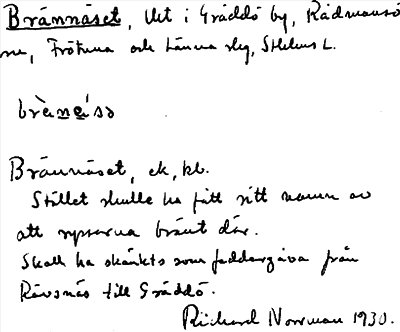 Brännäset, Ut i Gräddö by, Rådmansö
sn, Frötuna och Länna skg, Sthlms L.
Brännäset, ek, kl.
Stället skulle ha fått sitt namn av
att ryssarna bränt där.
Skall ha skänkts som faddergåva från
Rävsnäs till Gräddö.
Richard Norrman 1930.